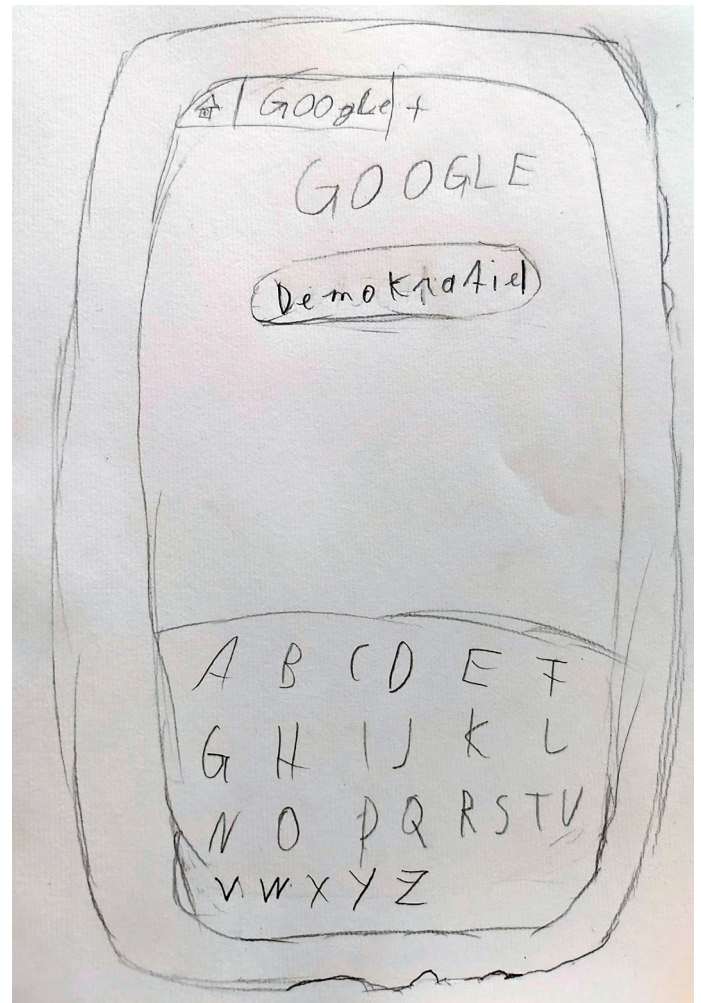 Google +
GOOGLE
Demokratie
A B C D E F
G H I J K L
N O P Q R S T U
V W X Y Z